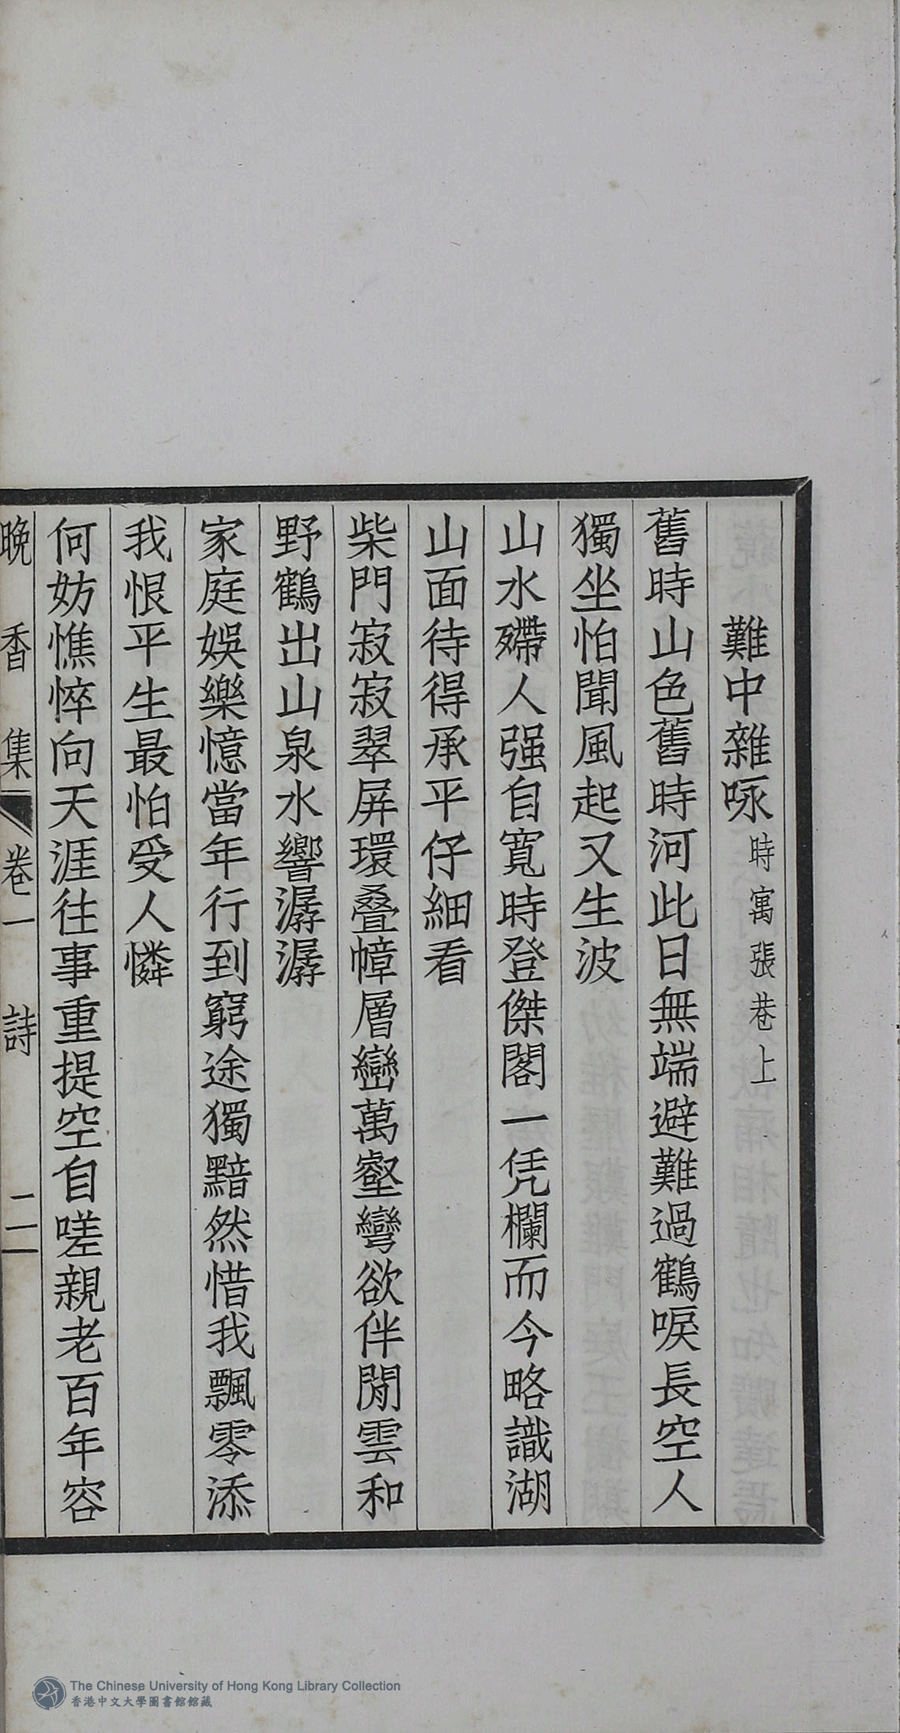 難中雜咏 時寓張巷上
舊時山色舊時河此日無端避難過鶴唳長空人
獨坐怕聞風起又生波
山水殢人强自寬時登傑閣一凭欄而今略識湖
山面待得承平仔細看
柴門寂寂翠屏環叠幛層巒萬壑彎欲伴閒雲和
野鶴出山泉水響潺潺
家庭娛樂憶當年行到窮途獨黯然惜我飄零添
我恨平生最怕受人憐
何妨憔悴向天涯往事重提空自嗟親老百年容
晚香集 卷一 詩 二
The Chinese University of Hong Kong Library Collection
香港中文大學圖書館館藏